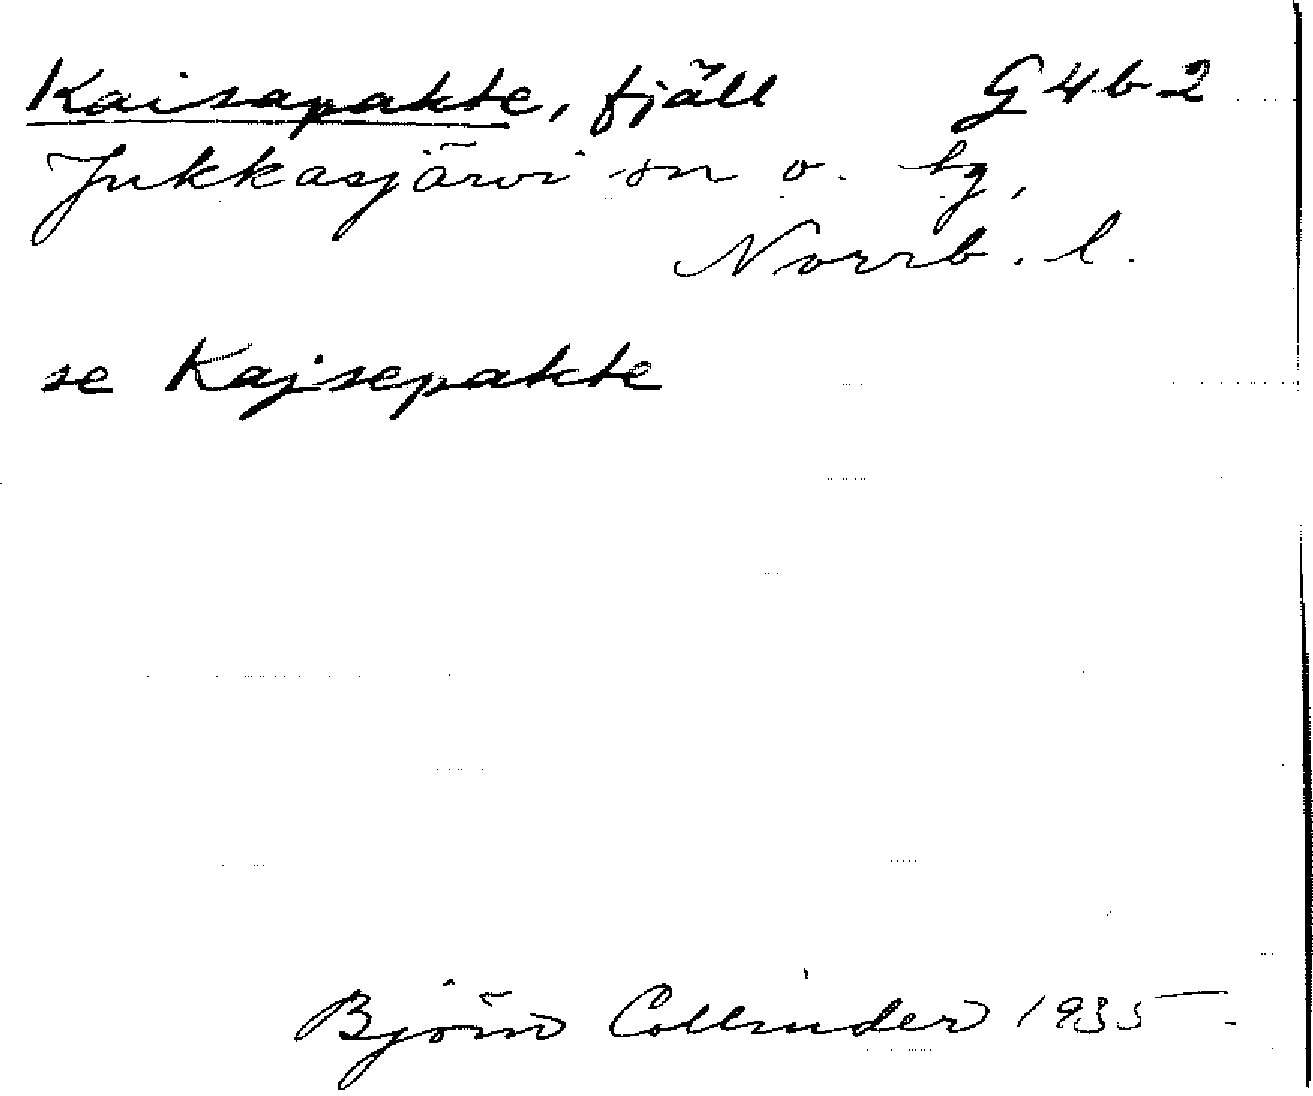 Kaisapakte, fjäll G4b2
Jukkasjärvi sn o. tg,
Norrb. l.
se Kajsepakte
Björn Collinder 1935